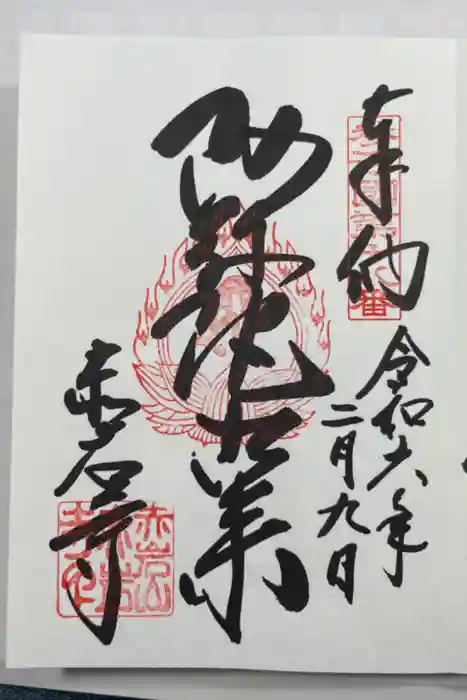 奉納
令和六年
二月九日
阿弥陀如来
赤岩寺